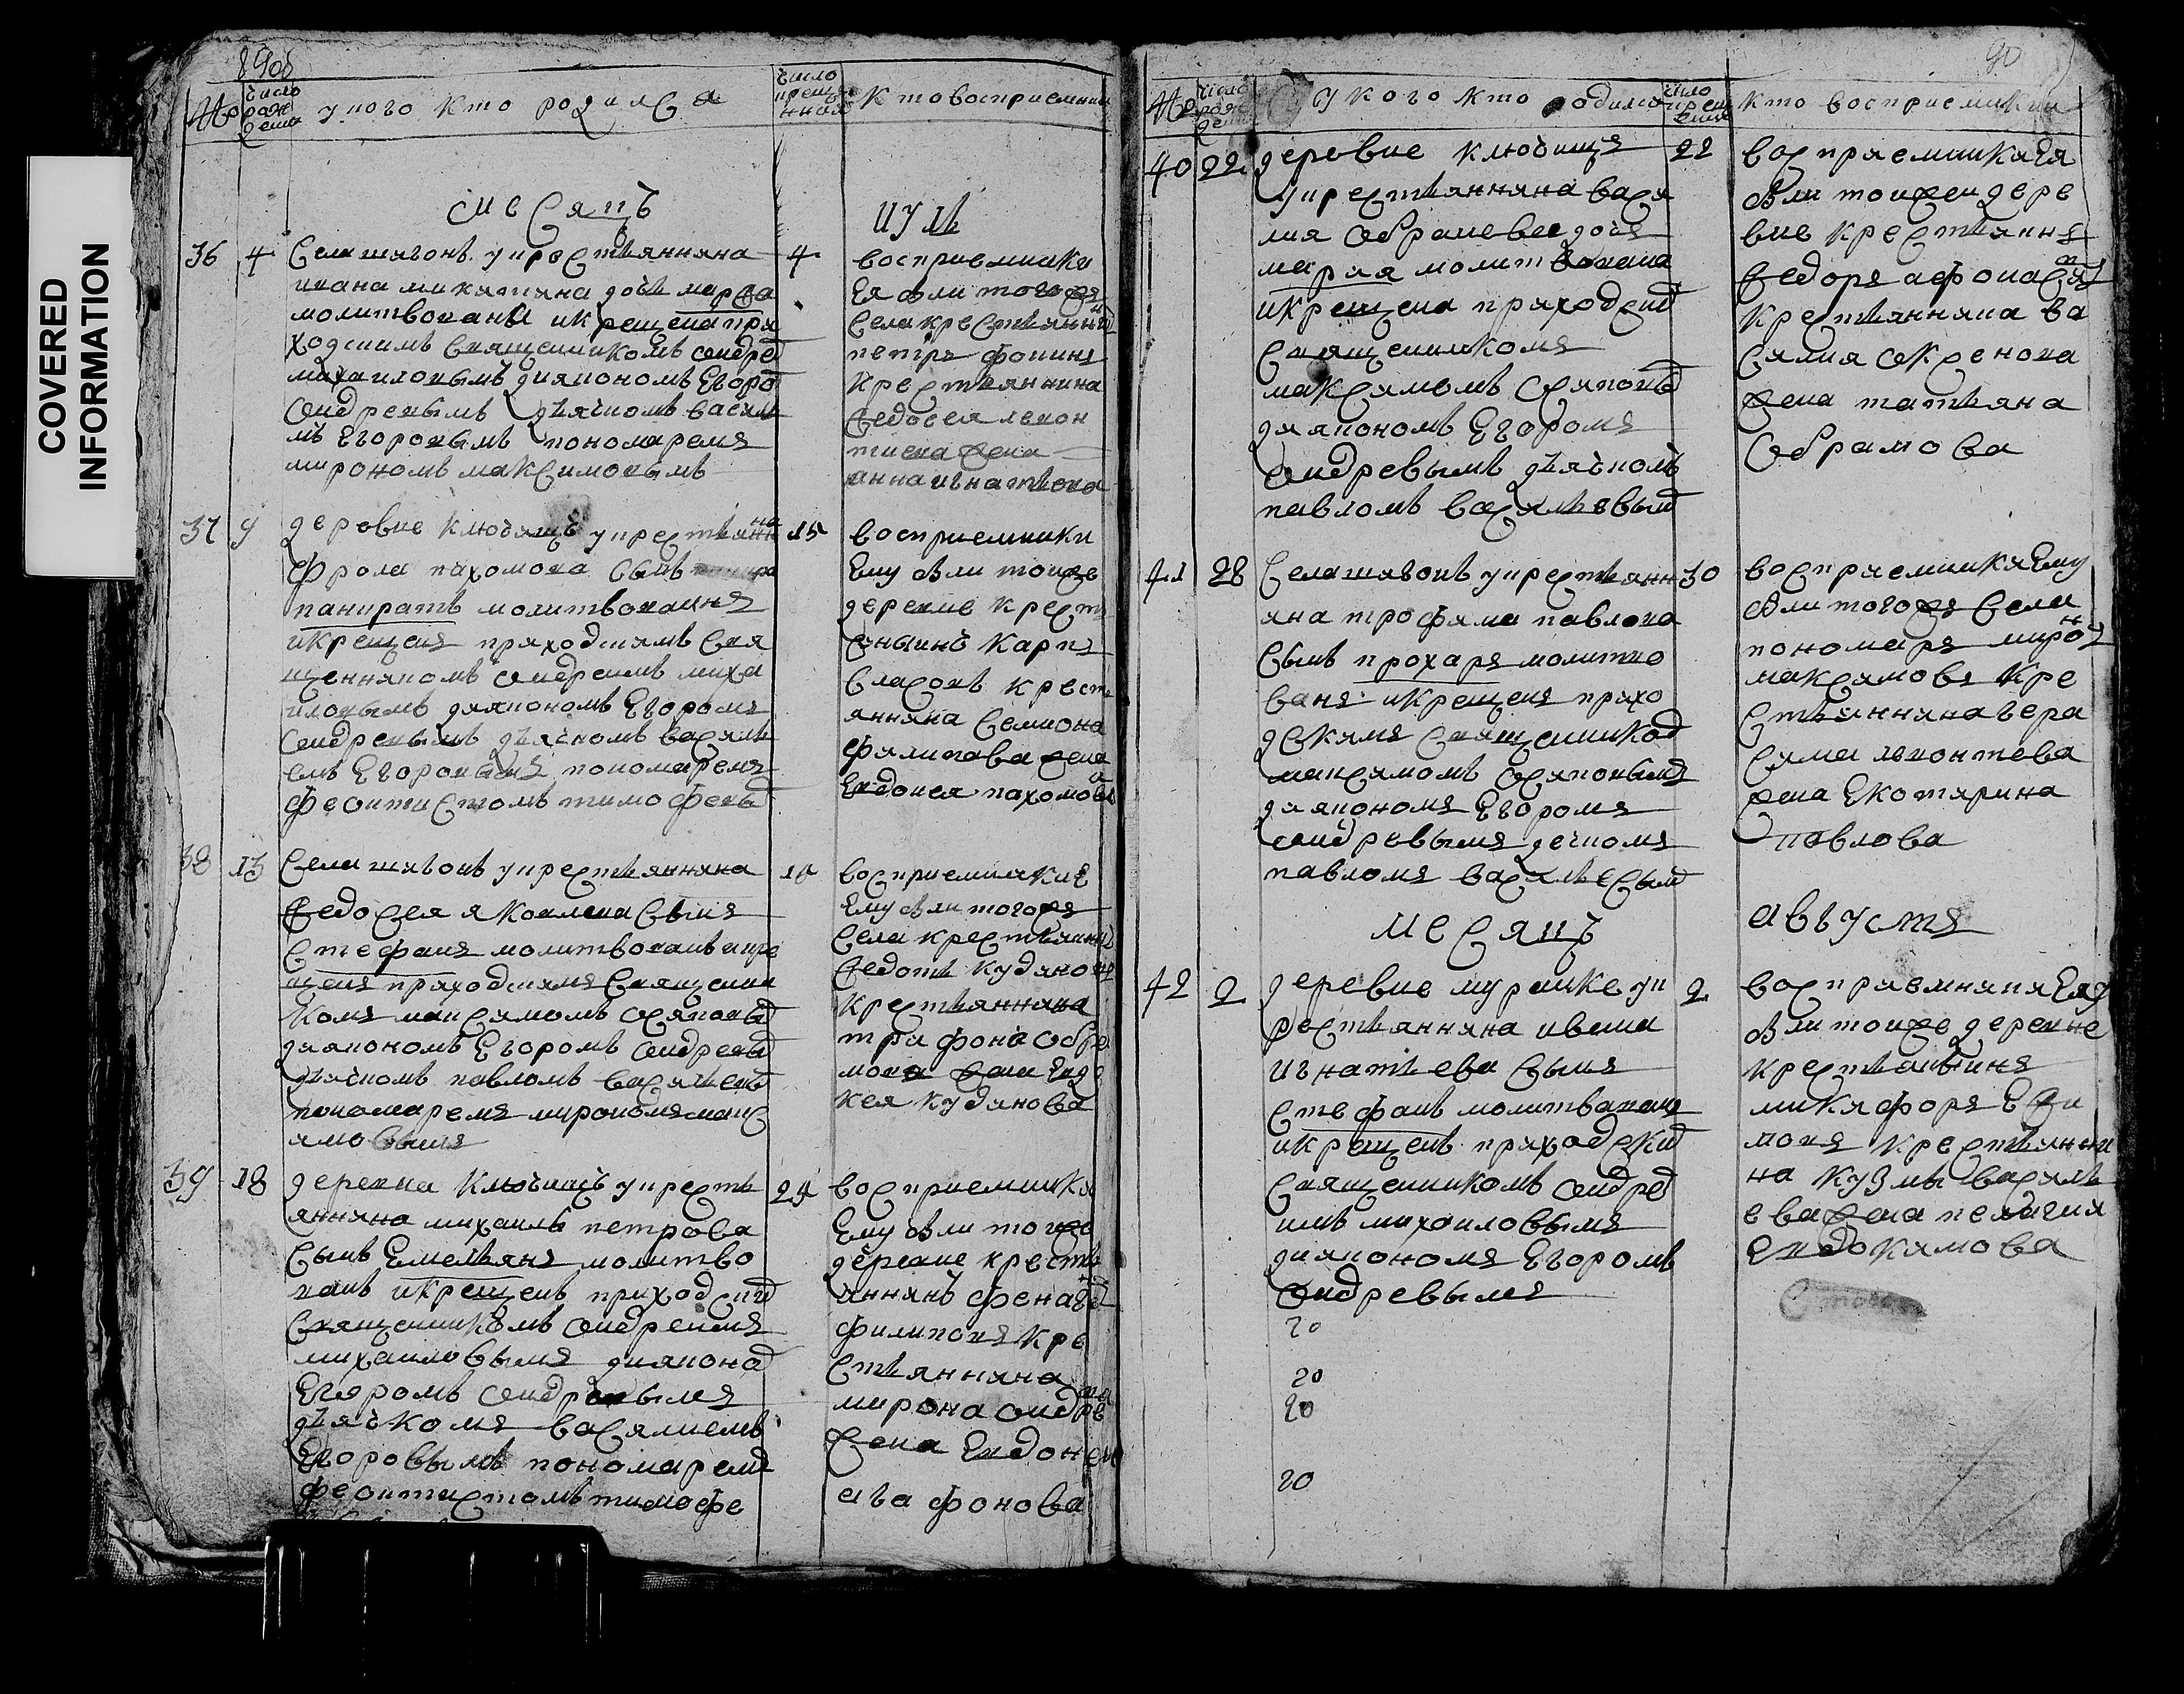 COVERED
INFORMATION
89об
№
число рождения
у кого кто родился
число крещения
кто восприемники
месяцъ
июль
36
4
села шягонь у крестьянняна
ивана микитина дочь марфа
молитвована и крещена при
ходскимъ священникомъ андрее
михаиловымъ дияконом Егоро
андревымъ дьячкомъ василье
мъ Егоровымъ пономаремъ
мирономъ максимовымъ
4
восприемники
Ея были тогожъ
села крестьяннин
петръ фокинъ
крестьяннина
федосея левон
тиева жена
анна игнатьева
37
9
деревне ключящъ у крестьянина
фрола пахомова сынъ
панкратъ молитвованнъ
и крещенъ приходскимъ свя
щенникомъ андреимъ миха
иловымъ дияконом Егоромъ
андревымъ дьячкомъ василь
емъ Егоровымъ пономаремъ
феоктистомъ тимофеев
15
восприемники
Ему были тоижъ
деревне крест
карпъ
власовъ крест
янняна семиона
филипава жена
Евдокея пахомова
38
13
села шягонь у крестьянняна
федосея яковлева сынъ
стефанъ молитвованъ и кре
щенъ приходскимъ священни
комъ максимомъ
дияконом Егоромъ андревы
дьячкомъ павломъ васильевы
пономаремъ мирономъ макс
имовымъ
восприемники
Ему были тогожъ
села крестьяннин
федотъ кудянов
крестьянняна
трифона обра
мова жена Евдо
кея кудянова
39
18
деревни ключищъ у кресть
янняна михаилы петрова
сынъ Емельянъ молитво
ванъ и крещенъ приходски
священникомъ андреимъ
михаиловымъ диякона
Егоромъ андревымъ
дьячкомъ васялиемъ
Егоровымъ пономаремъ
феоктистомъ тимофе
24
восприемники
Ему были тоиже
деревне кресть
яннянъ
филиповъ кре
стьянняна
мирона андре
жена Евдокея
агафонова
90
№
число рождения
у кого кто родился
число крещения
кто восприемники
40
22
деревне ключищъ
у крестьянняна васи
лия дочь
мария молитвована
и крещена приходски
священникомъ
максимомъ
дияконом Егоромъ
андревымъ дьячкомъ
павломъ васильевым
22
восприемники Ея
были тоижеи дере
вне крестьяннн
федоръ афонасьев
крестьянняна ва
силия
жена татьяна
обрамова
41
28
села шягонь у крестьянн
яна трофима павлова
сынъ прохаръ молитво
ванъ и крещенъ прихо
дскимъ священником
максимомъ
дияконом Егоромъ
андревымъ дечкомъ
павломъ васильевым
30
восприемники Ему
были тогожъ села
пономаръ мирон
максимовъ кре
стьянняна гера
сима левонтева
жена Екотярина
павлова
месяцъ
августъ
42
2
деревне мурашке у к
рестьянняна ивана
игнатьева сынъ
стефанъ молитвованъ
и крещенъ приходски
священникомъ андре
имъ михаиловымъ
дияконом Егоромъ
андревымъ
2
восприемники Ему
были тоиже деревне
крестьянинъ
микифоръ Ефи
мовъ крестьянни
на кузмы василь
ева жена пелагия
Евдокимова
20
20
20
20